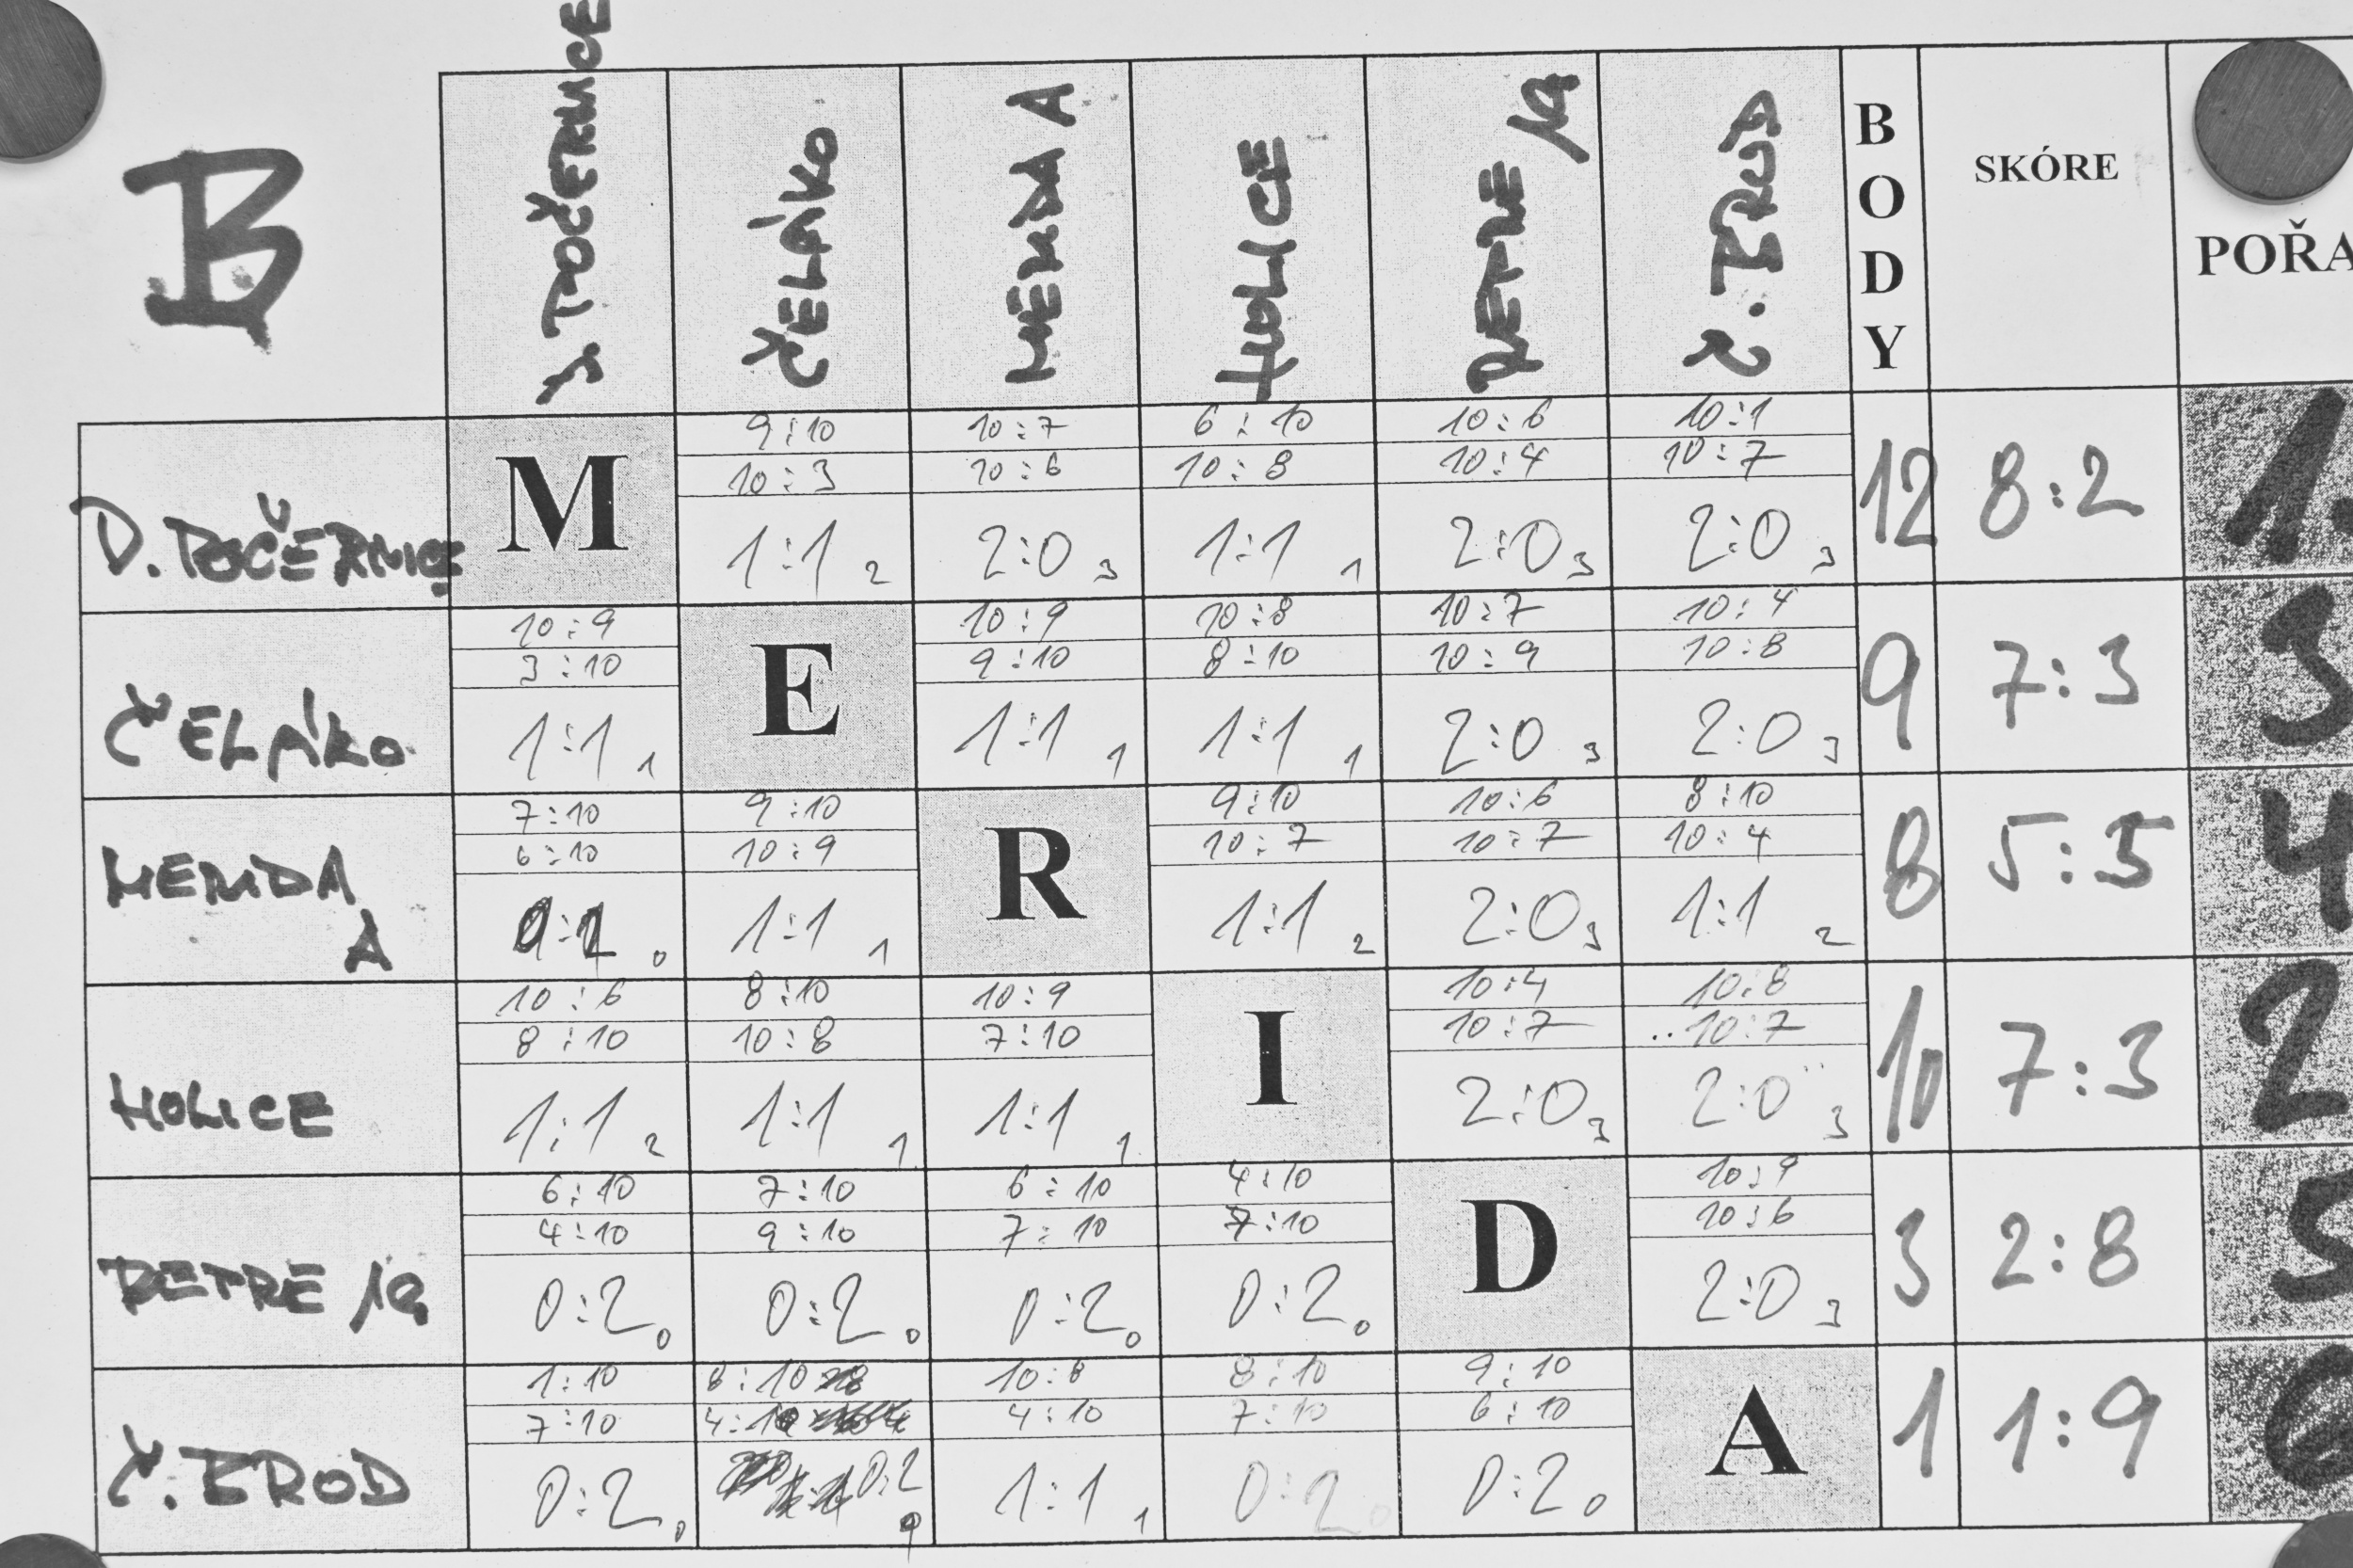 B
D. POČERNICE ČELÁKO MERIDA A HOLICE BETRE 1a Č. BROD BODY SKÓRE POŘA
9:10 10:7 6:10 10:6 10:1
10:3 10:6 10:8 10:4 10:7
D. POČERNICE M 1:1 2 2:0 3 1:1 1 2:0 3 2:0 3 12 8:2 1.
10:9 10:9 10:8 10:7 10:4
3:10 9:10 8:10 10:9 10:8
ČELÁKO 1:1 1 E 1:1 1 1:1 1 2:0 3 2:0 3 9 7:3 3
7:10 9:10 9:10 10:6 8:10
6:10 10:9 10:7 10:7 10:4
MERIDA A 0:2 0 1:1 1 R 1:1 2 2:0 3 1:1 2 8 5:5 4
10:6 8:10 10:9 10:4 10:8
8:10 10:8 7:10 10:7 10:7
HOLICE 1:1 2 1:1 1 1:1 1 I 2:0 3 2:0 3 10 7:3 2
6:10 7:10 6:10 4:10 10:9
4:10 9:10 7:10 7:10 10:6
BETRE 1a 0:2 0 0:2 0 0:2 0 0:2 0 D 2:0 3 3 2:8 5
1:10 8:10 10:8 8:10 9:10
7:10 4:10 4:10 7:10 6:10
Č. BROD 0:2 0 0:2 0 1:1 1 0:2 0 0:2 0 A 1 1:9 6